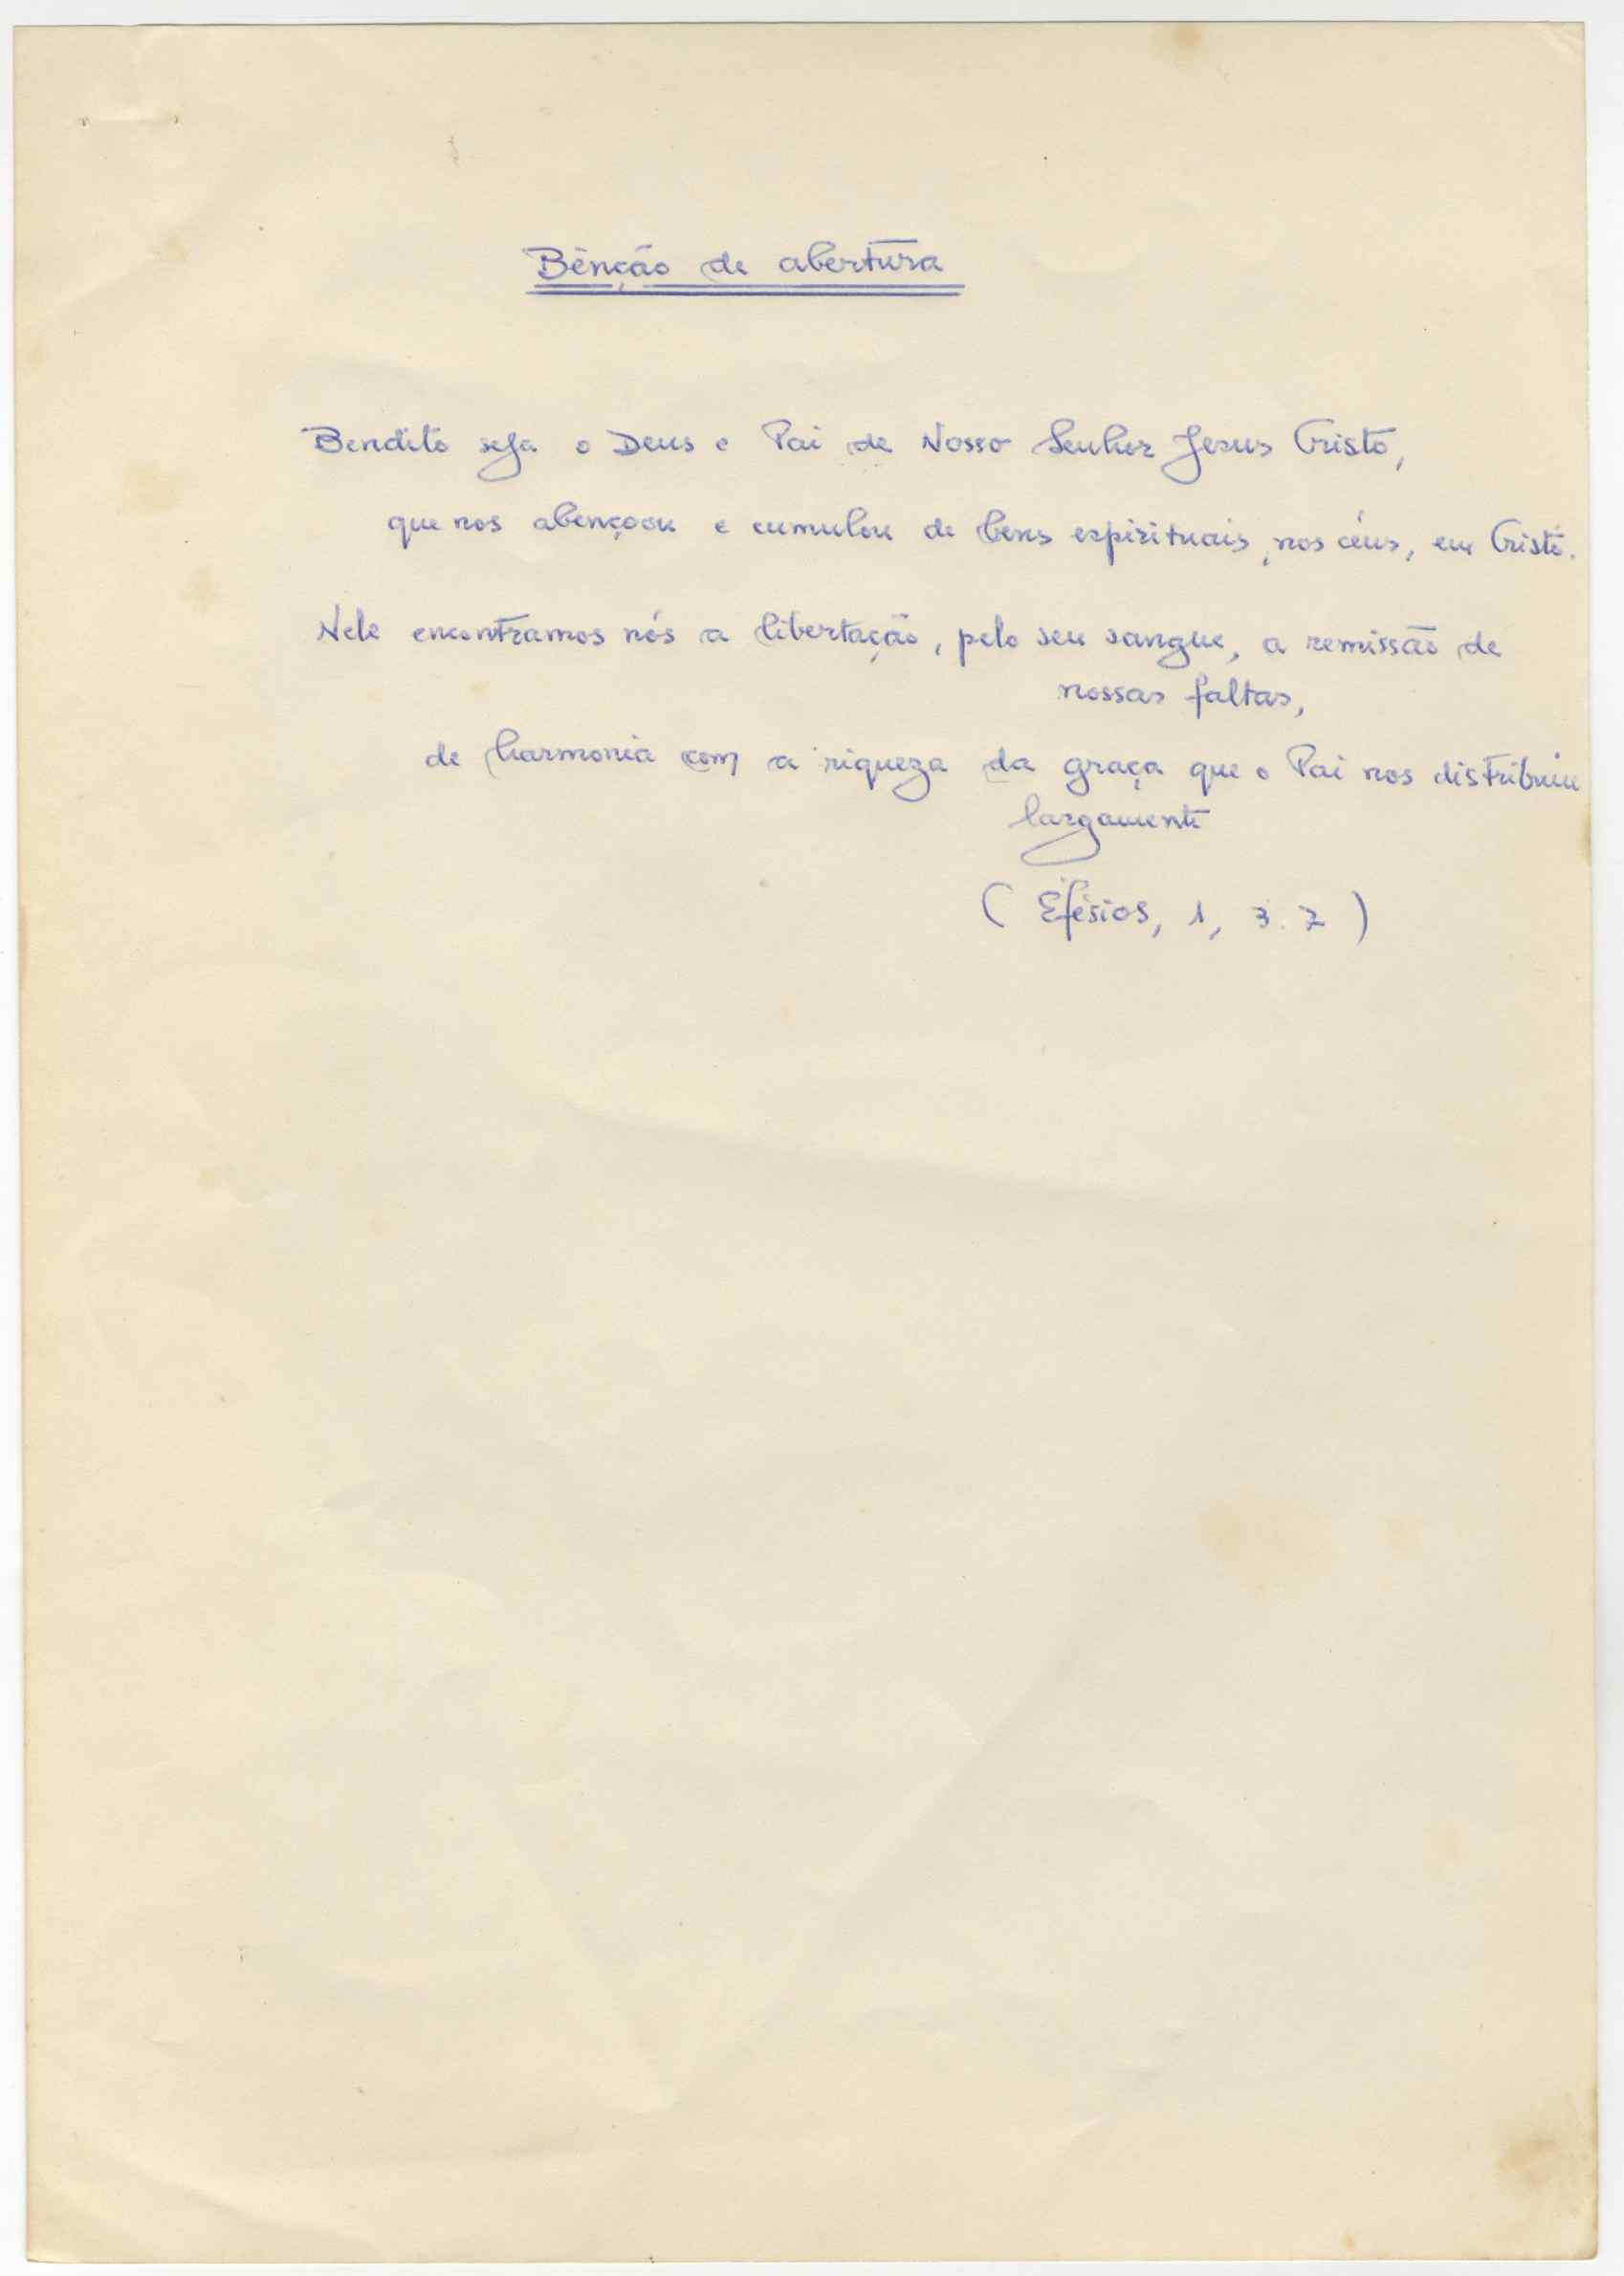 Bênção de abertura
Bendito seja o Deus e Pai de Nosso Senhor Jesus Cristo,
que nos abençoou e cumulou de bens espirituais, nos céus, em Cristo.
Nele encontramos nós a libertação, pelo seu sangue, a remissão de
nossas faltas,
de harmonia com a riqueza da graça que o Pai nos distribuiu
largamente
( Efésios, 1, 3.7 )